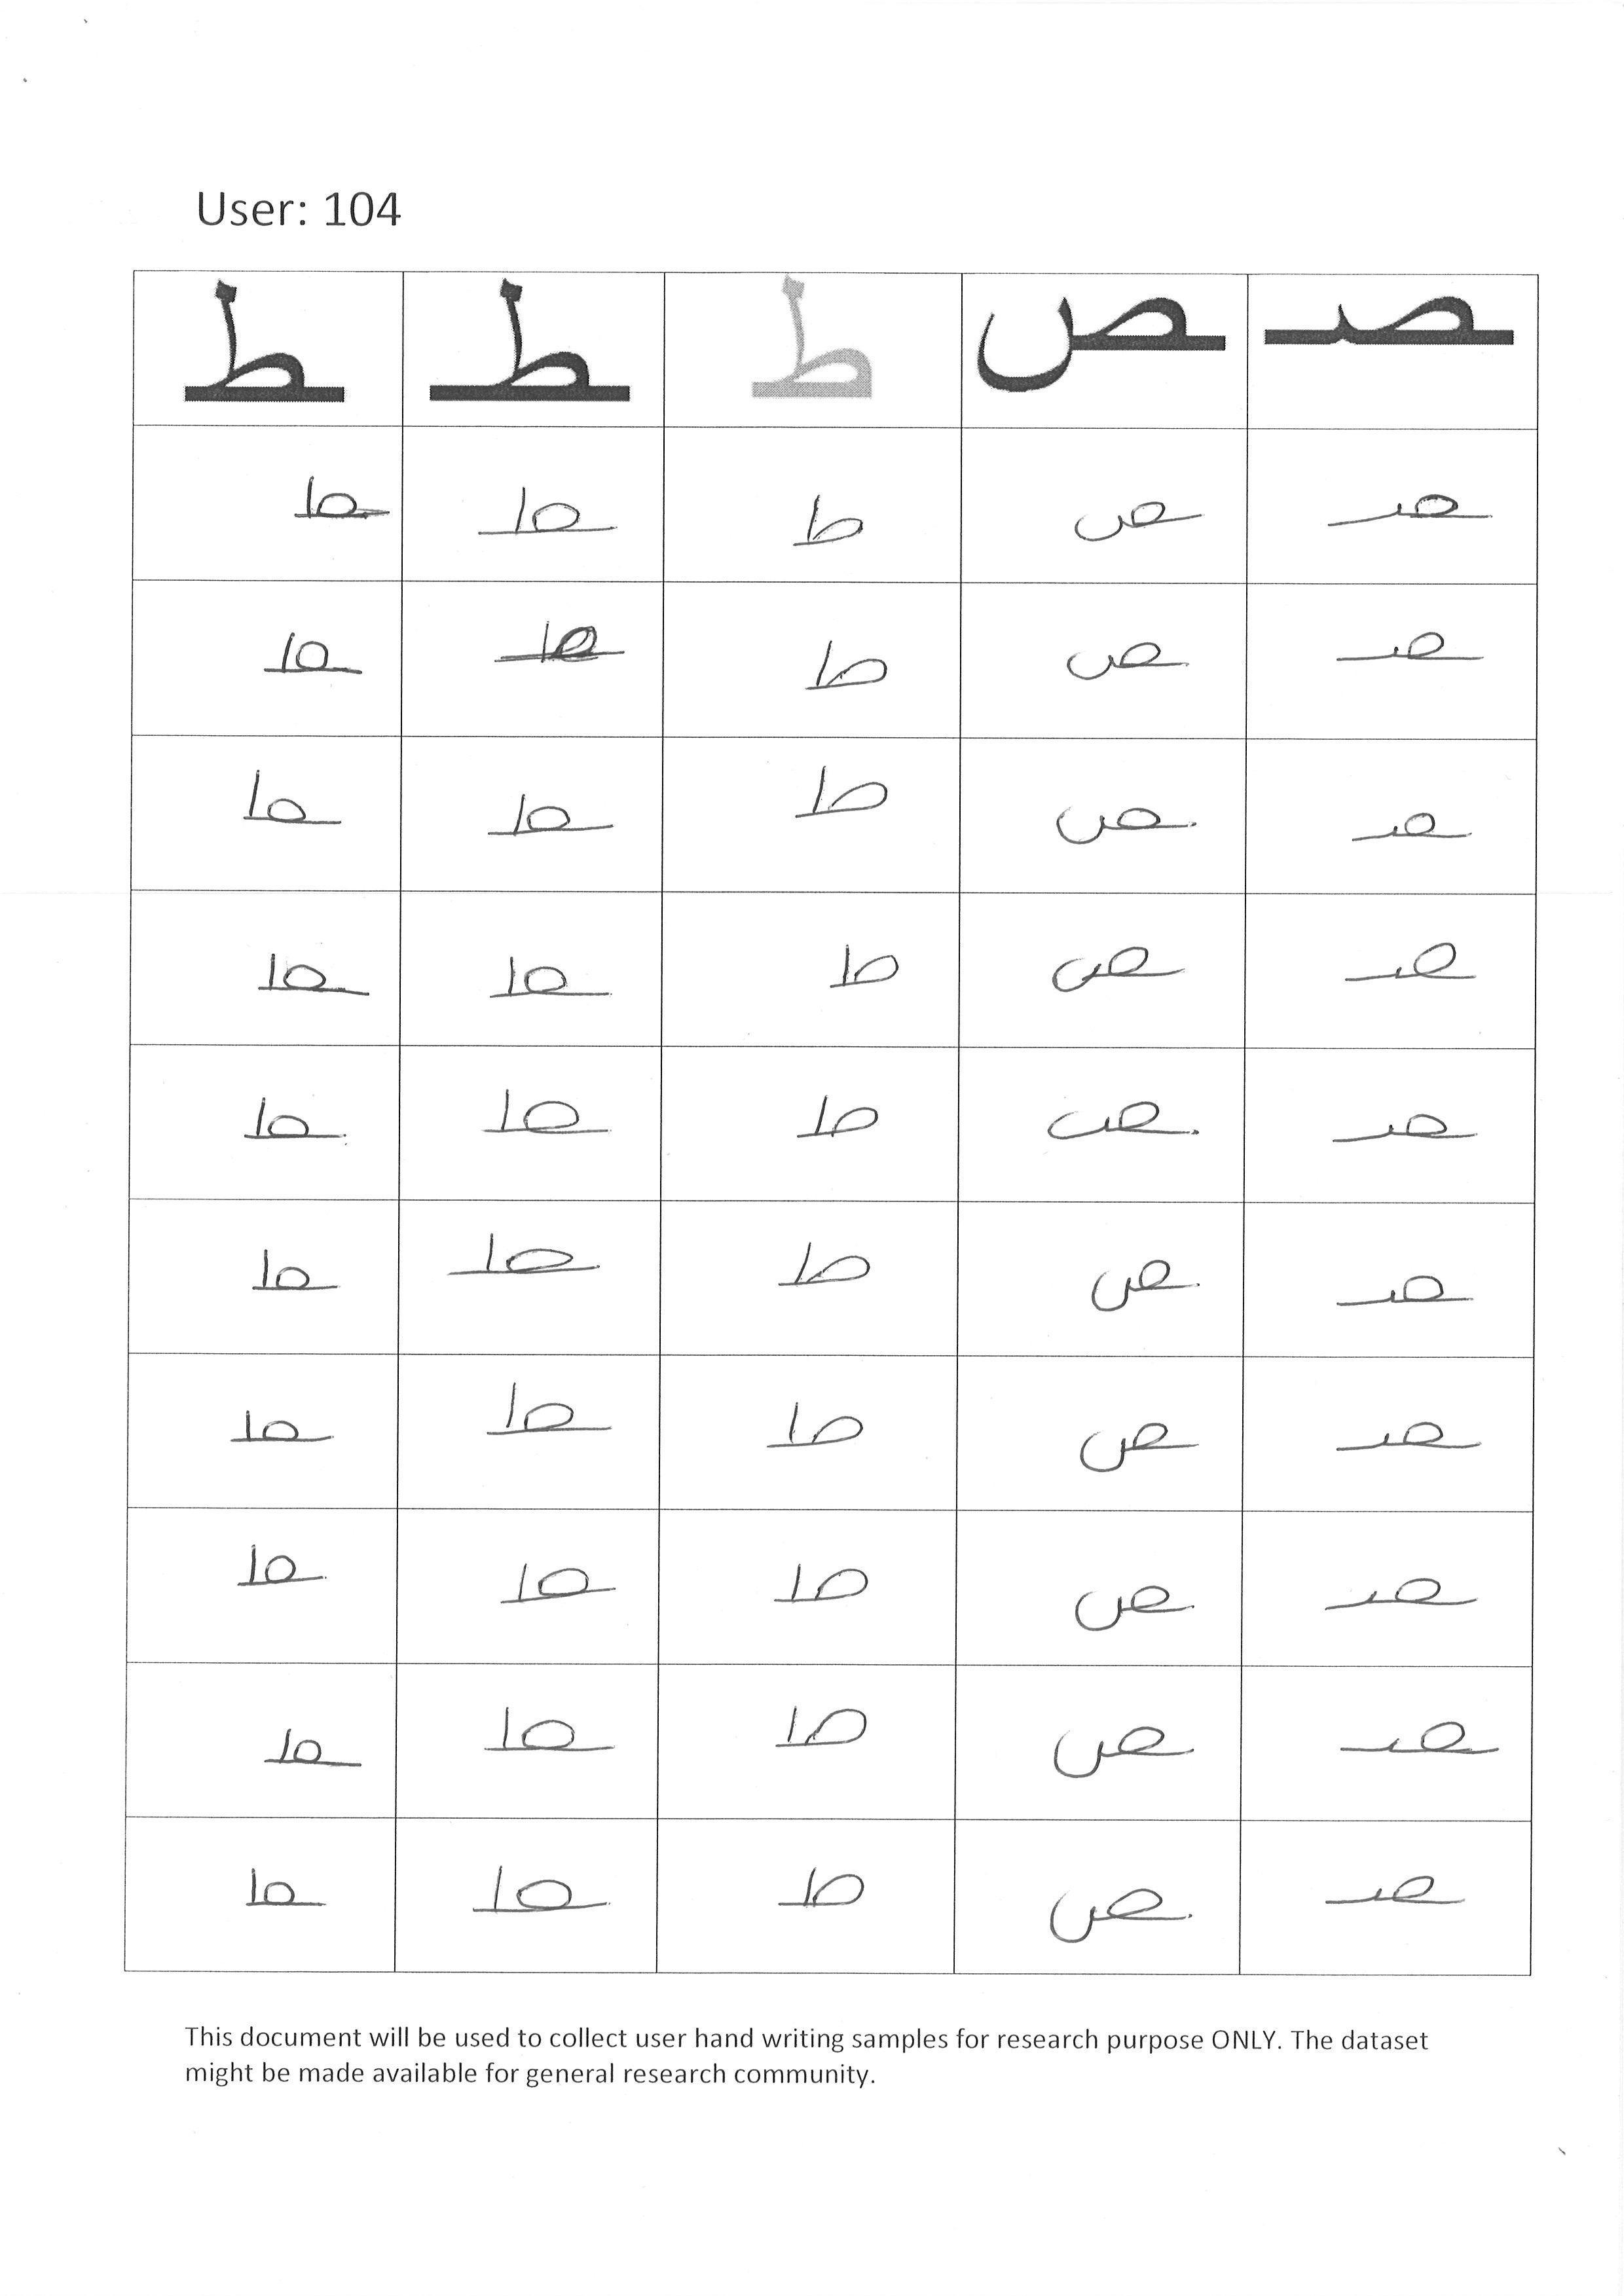 User: 104
ـصـ ـص ط ـطـ ـط
ـصـ ـص ط ـطـ ـط
ـصـ ـص ط ـطـ ـط
ـصـ ـص ط ـطـ ـط
ـصـ ـص ط ـطـ ـط
ـصـ ـص ط ـطـ ـط
ـصـ ـص ط ـطـ ـط
ـصـ ـص ط ـطـ ـط
ـصـ ـص ط ـطـ ـط
ـصـ ـص ط ـطـ ـط
ـصـ ـص ط ـطـ ـط
This document will be used to collect user hand writing samples for research purpose ONLY. The dataset
might be made available for general research community.